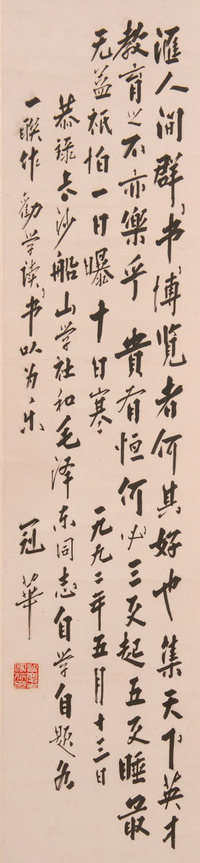 滙人间群书博览者何其好也集天下英才
教育之不亦樂乎 貴有恒何必三更起五更睡最
无益祇怕一日曝十日寒 一九九二年五月十三日
恭録长沙船山学社和毛泽东同志自学自题各
一联作勸学读书以为乐
冠華